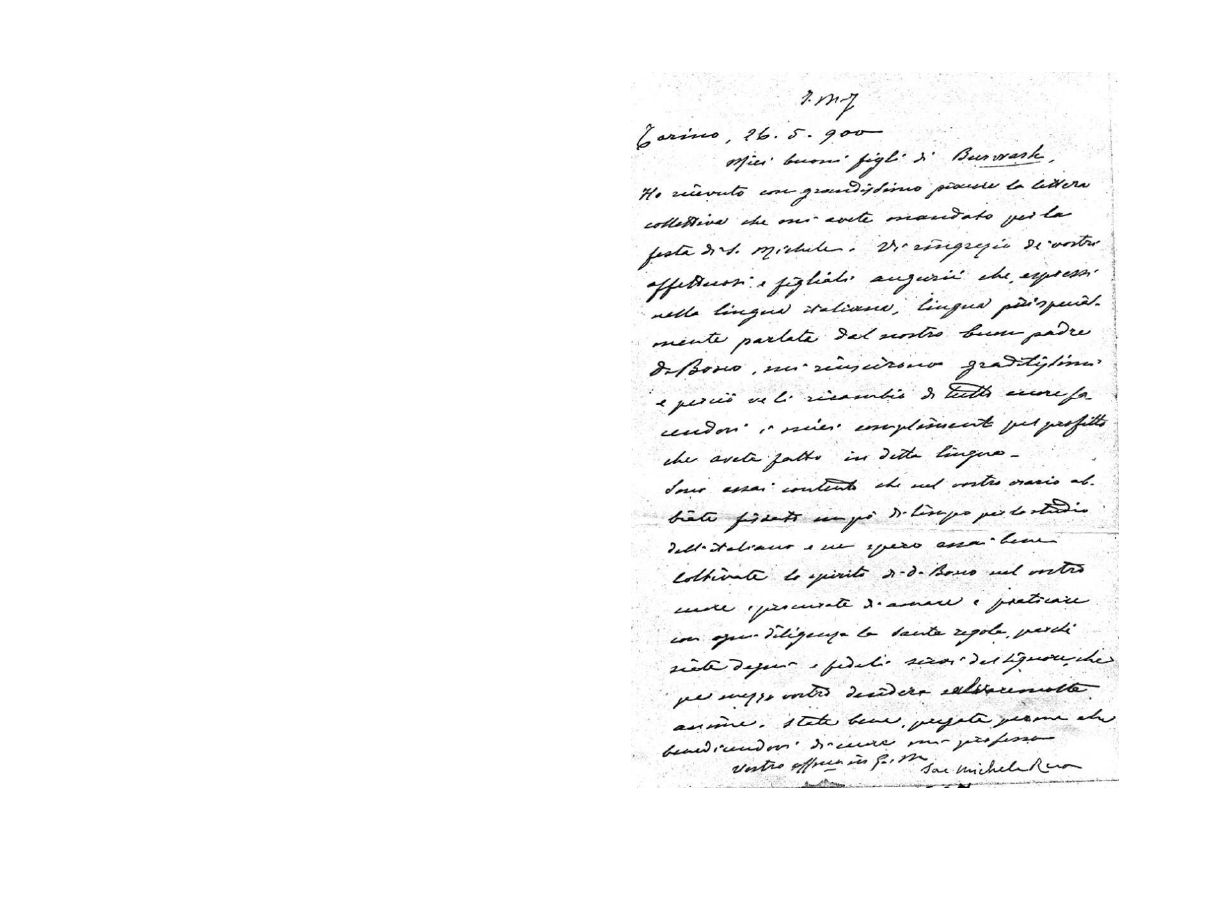 J. M. J
Torino, 26. 5. 900
Miei buoni figli di Burwash,
Ho ricevuto con grandissimo piacere la lettera
collettiva che mi avete mandato per la
festa di S. Michele. Vi ringrazio de' vostri
affettuosi e figliali augurii che, espressi
nella lingua italiana, lingua più special-
mente parlata dal nostro buon padre
D. Bosco, mi riuscirono graditissimi
e perciò ve li ricambio di tutto cuore fa-
cendovi i miei complimenti pel profitto
che avete fatto in detta lingua -
Sono assai contento che nel vostro orario ab-
biate fissato un po' di tempo per lo studio
dell'italiano e ne spero assai bene
Coltivate lo spirito di D. Bosco nel vostro
cuore e procurate di amare e praticare
con ogni diligenza la santa regola, perché
siate degni e fedeli servi del Signore, che
per mezzo vostro desidera salvare molte
anime. State bene, pregate per me che
benedicendovi di cuore mi professo
Vostro aff.mo in G. e M.
Sac. Michele Rua